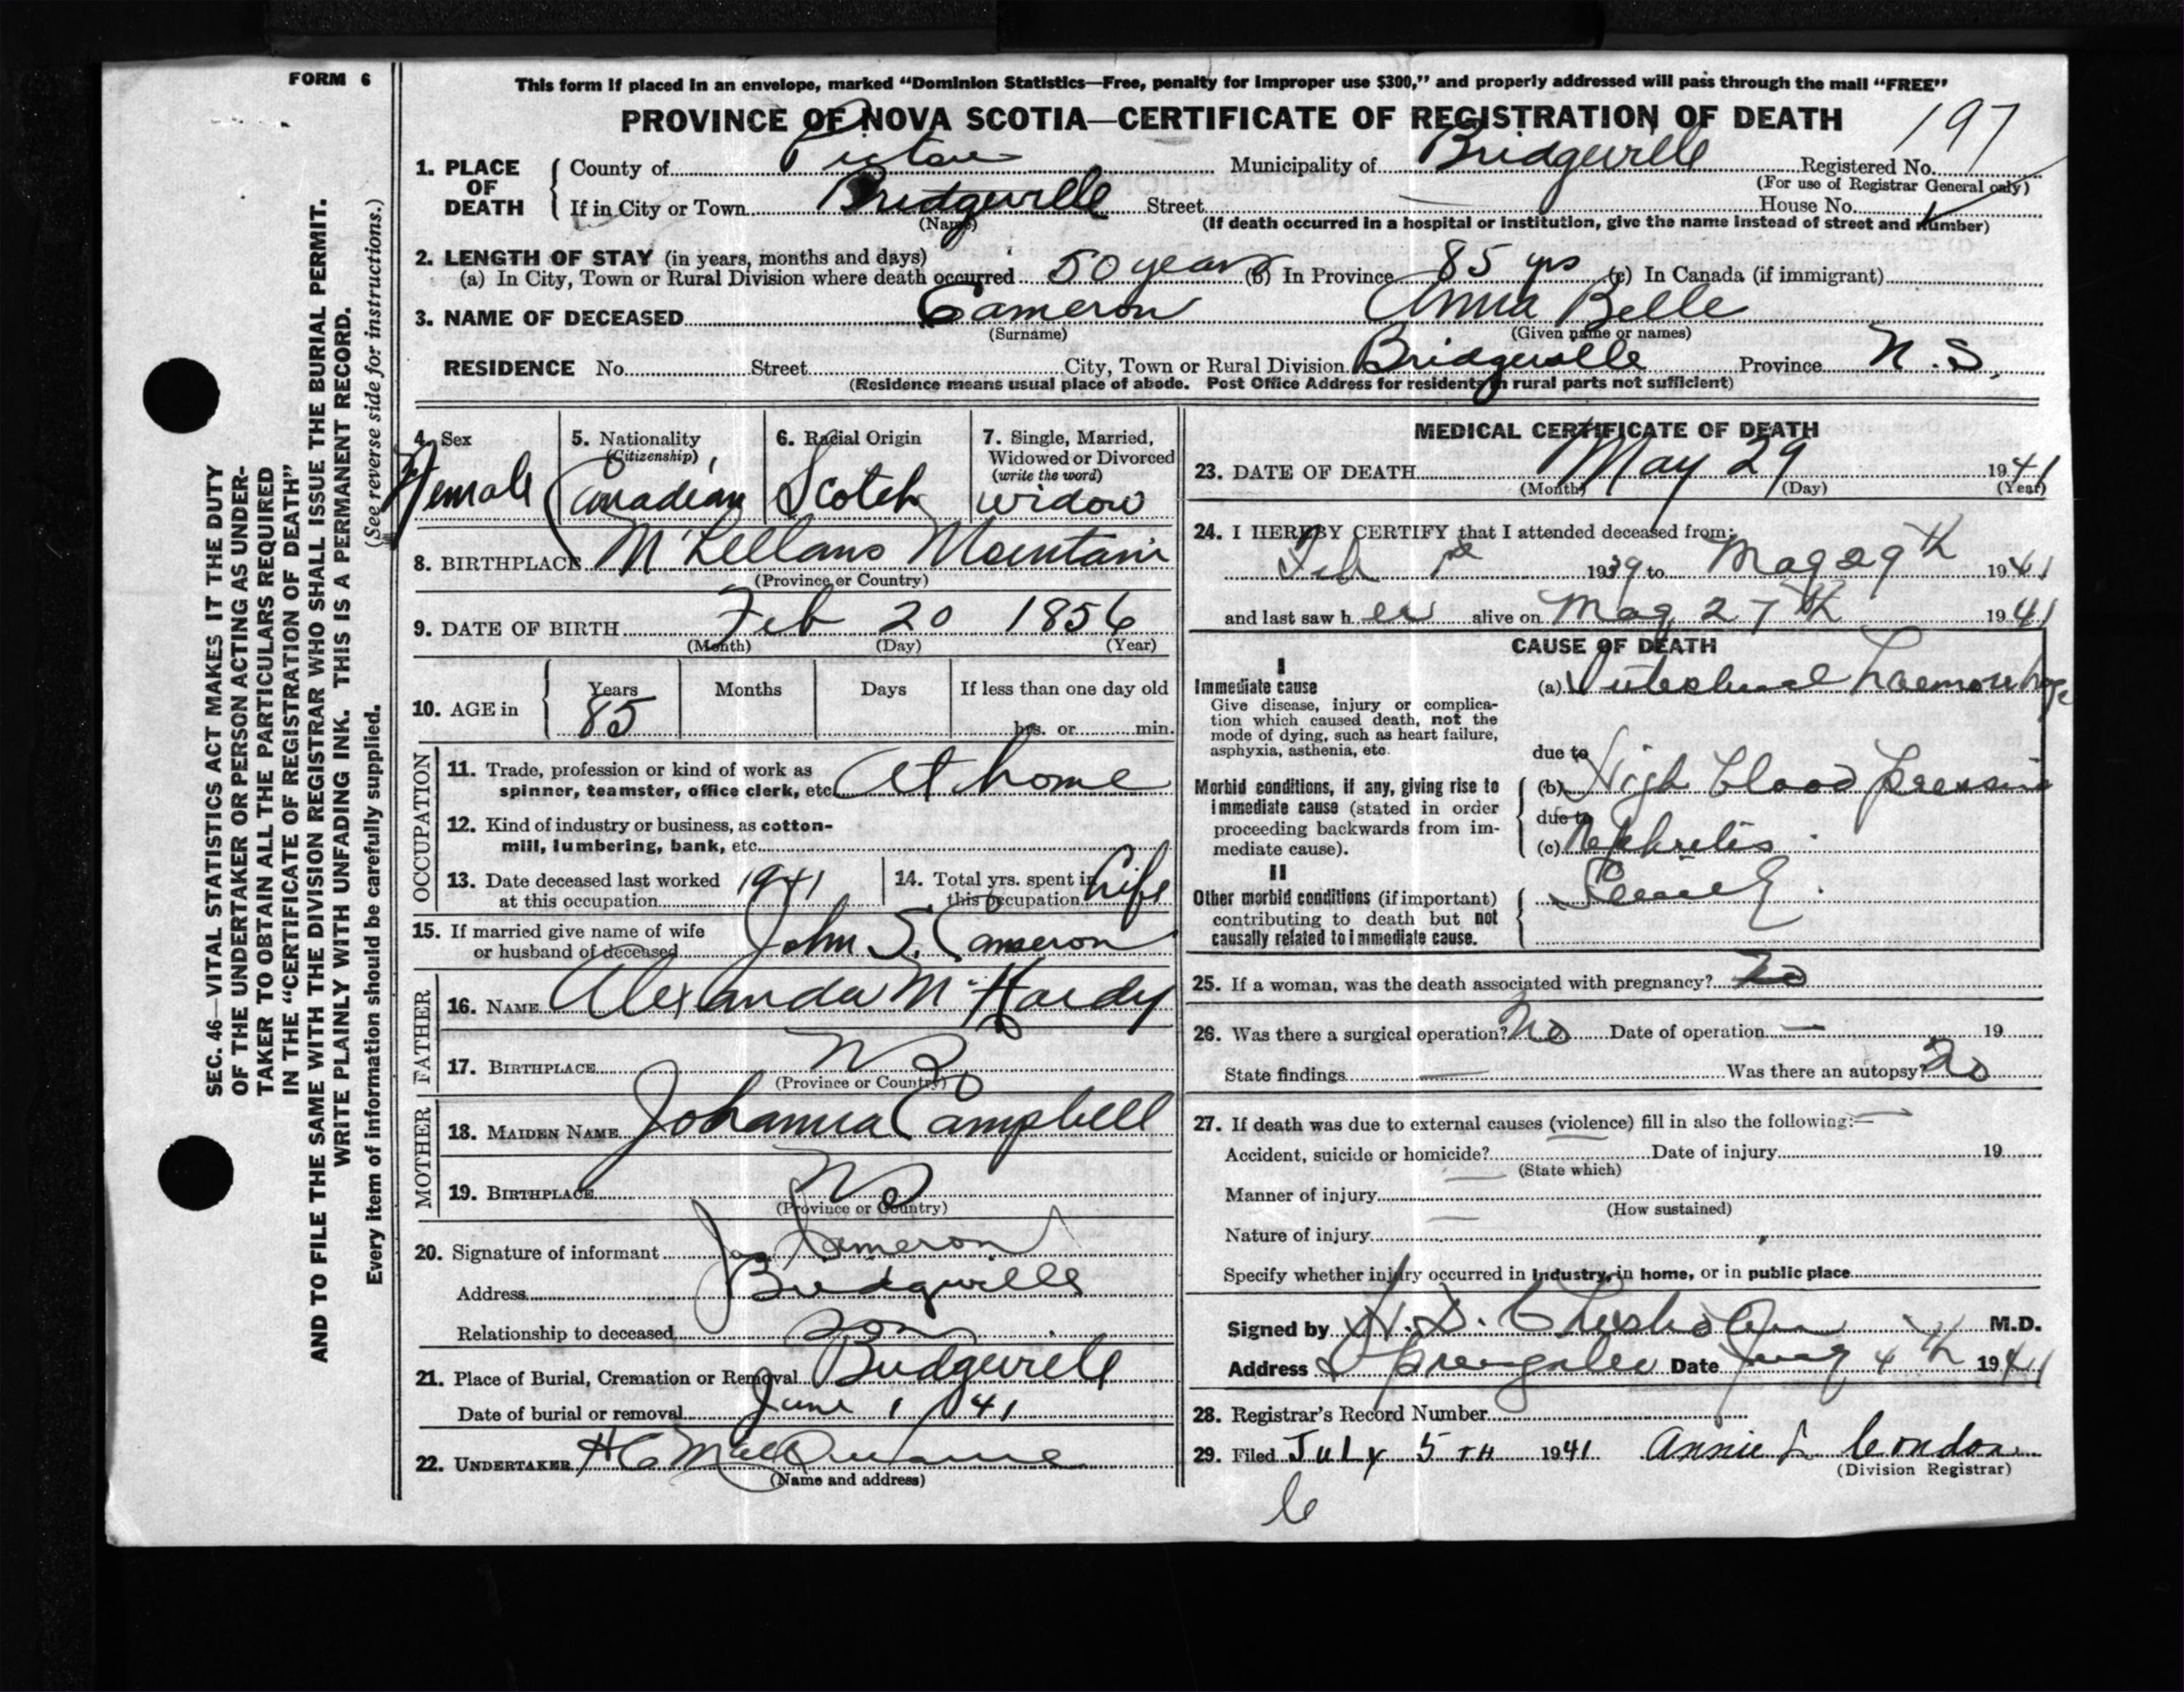 FORM 6
This form if placed in an envelope, marked "Dominion Statistics—Free, penalty for improper use $300," and properly addressed will pass through the mail "FREE"
PROVINCE OF NOVA SCOTIA—CERTIFICATE OF REGISTRATION OF DEATH
197
1. PLACE OF DEATH
County of Pictou Municipality of Bridgeville Registered No.
(For use of Registrar General only)
If in City or Town Bridgeville Street House No.
(Name) (If death occurred in a hospital or institution, give the name instead of street and number)
2. LENGTH OF STAY (in years, months and days)
(a) In City, Town or Rural Division where death occurred 50 years (b) In Province 85 yrs (c) In Canada (if immigrant)
3. NAME OF DECEASED Cameron Anna Belle
(Surname) (Given name or names)
RESIDENCE No. Street City, Town or Rural Division Bridgeville Province N.S.
(Residence means usual place of abode. Post Office Address for residents in rural parts not sufficient)
4. Sex
Female
5. Nationality
(Citizenship)
Canadian
6. Racial Origin
Scotch
7. Single, Married,
Widowed or Divorced
(write the word)
widow
8. BIRTHPLACE McLellans Mountain
(Province or Country)
9. DATE OF BIRTH Feb 20 1856
(Month) (Day) (Year)
10. AGE in
Years Months Days If less than one day old
85 hrs. or min.
OCCUPATION
11. Trade, profession or kind of work as
spinner, teamster, office clerk, etc. At home
12. Kind of industry or business, as cotton-
mill, lumbering, bank, etc.
13. Date deceased last worked
at this occupation 1941
14. Total yrs. spent in
this occupation Life
15. If married give name of wife
or husband of deceased John S. Cameron
FATHER
16. NAME Alexander McHardy
17. BIRTHPLACE NS
(Province or Country)
MOTHER
18. MAIDEN NAME Johanna Campbell
19. BIRTHPLACE NS
(Province or Country)
20. Signature of informant Jas Cameron
Address Bridgeville
Relationship to deceased son
21. Place of Burial, Cremation or Removal Bridgeville
Date of burial or removal June 1 1941
22. UNDERTAKER H C
(Name and address)
MEDICAL CERTIFICATE OF DEATH
23. DATE OF DEATH May 29 1941
(Month) (Day) (Year)
24. I HEREBY CERTIFY that I attended deceased from:
Feb 1st 1939 to May 29th 1941
and last saw her alive on May 27th 1941
CAUSE OF DEATH
I
Immediate cause
Give disease, injury or complica-
tion which caused death, not the
mode of dying, such as heart failure,
asphyxia, asthenia, etc.
(a) haemorrhage
due to
Morbid conditions, if any, giving rise to
immediate cause (stated in order
proceeding backwards from im-
mediate cause).
(b) High blood pressure
due to
(c) Nephritis
II
Other morbid conditions (if important)
contributing to death but not
causally related to immediate cause.
25. If a woman, was the death associated with pregnancy? No
26. Was there a surgical operation? No Date of operation — 19
State findings — Was there an autopsy? No
27. If death was due to external causes (violence) fill in also the following:—
Accident, suicide or homicide? Date of injury 19
(State which)
Manner of injury
(How sustained)
Nature of injury
Specify whether injury occurred in industry, in home, or in public place
Signed by H. D. Chisholm M.D.
Address Springville Date July 4th 1941
28. Registrar's Record Number
29. Filed July 5TH 1941 Annie L Condon
(Division Registrar)
SEC. 46—VITAL STATISTICS ACT MAKES IT THE DUTY
OF THE UNDERTAKER OR PERSON ACTING AS UNDER-
TAKER TO OBTAIN ALL THE PARTICULARS REQUIRED
IN THE "CERTIFICATE OF REGISTRATION OF DEATH"
AND TO FILE THE SAME WITH THE DIVISION REGISTRAR WHO SHALL ISSUE THE BURIAL PERMIT.
WRITE PLAINLY WITH UNFADING INK. THIS IS A PERMANENT RECORD.
Every item of information should be carefully supplied. (See reverse side for instructions.)